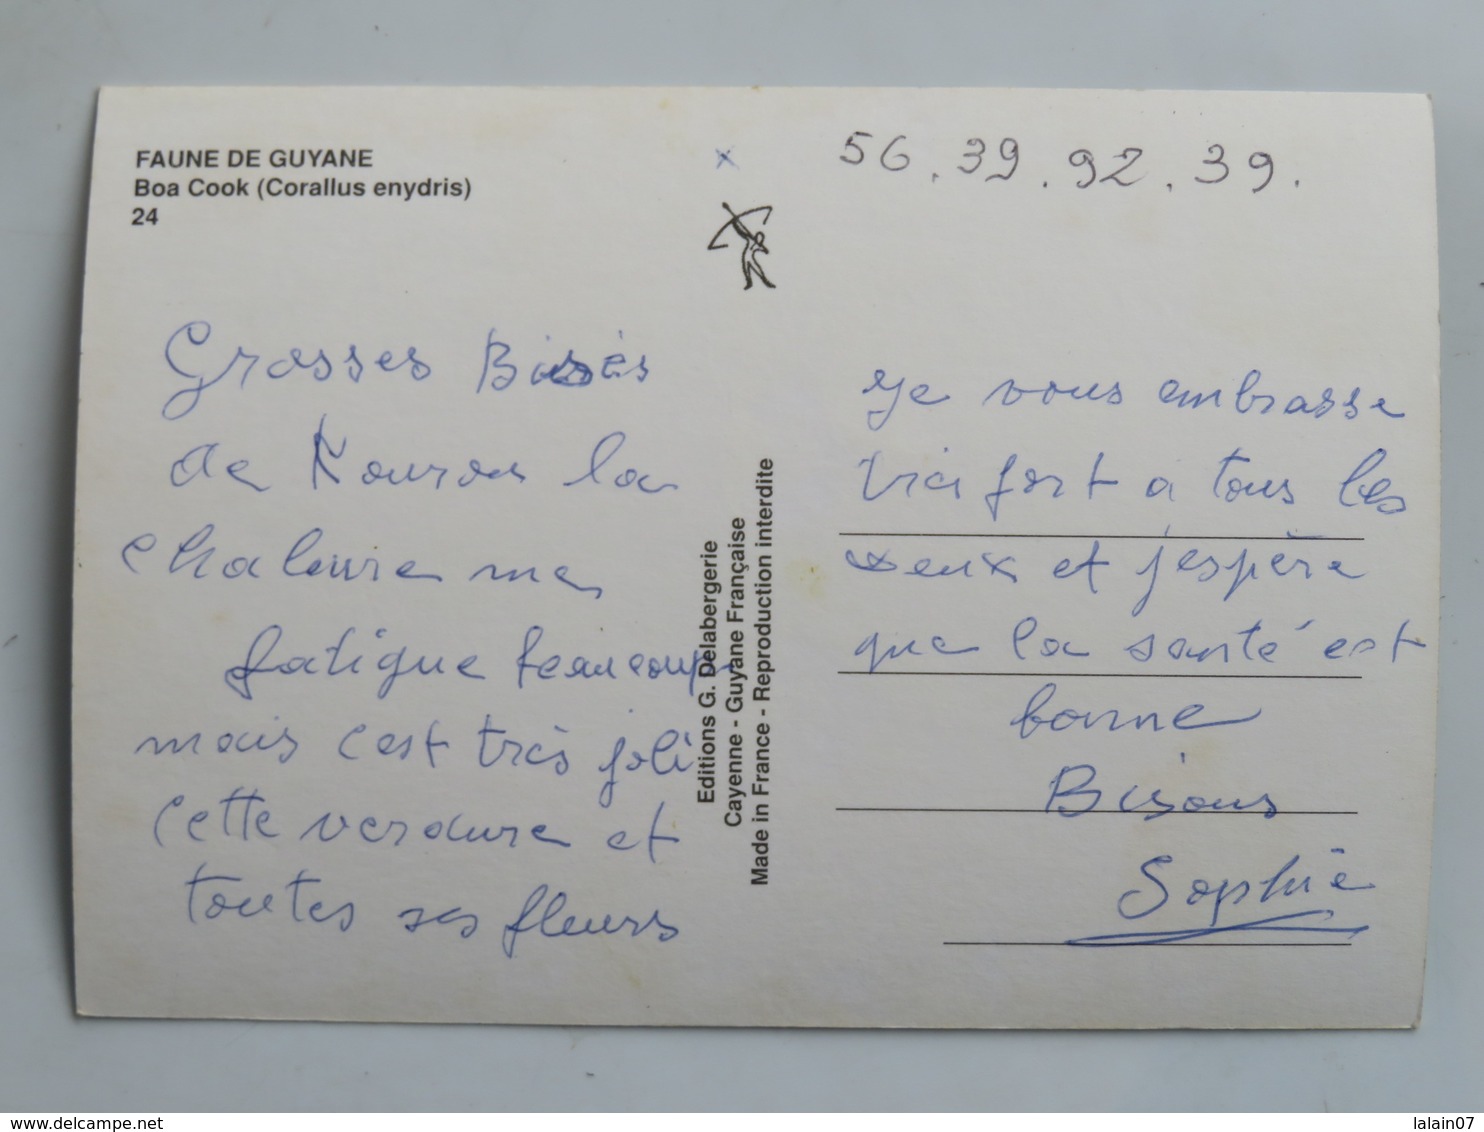 FAUNE DE GUYANE
Boa Cook (Corallus enydris)
24
Grosses Bises
de Kourou la
chaleure me
fatigue beaucoup
mais c'est très joli
cette verdure et
toutes ses fleurs
Editions G. Delabergerie
Cayenne - Guyane Française
Made in France - Reproduction interdite
x
56.39.92.39.
Je vous embrasse
très fort a tous les
deux et j'espère
que la santé est
bonne
Bisous
Sophie
www.delcampe.net
lalain07